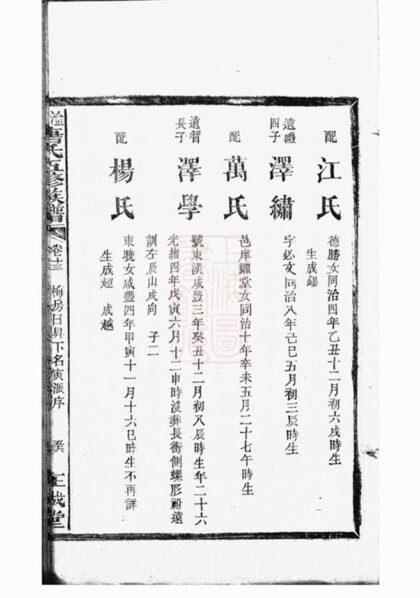 配 江氏 德勝女同治四年乙丑十二月初六戌時生
生成錫
遺禮四子 澤繡 字必文同治八年己巳五月初三辰時生
配 萬氏 邑庠鑑堂女同治十年辛未五月二十七午時生
遺智長子 澤學 號東漢咸豐三年癸丑十二月初八辰時生年二十六
光緒四年戊寅六月十二申時沒葬長衝側螺形祔遠
訓左辰山戌向 子二
配 楊氏 東曉女咸豐四年甲寅十一月十六巳時生不再詳
生成超 成越
氏五修族譜 卷十三 梅房日昇下名寅派序 正誠堂